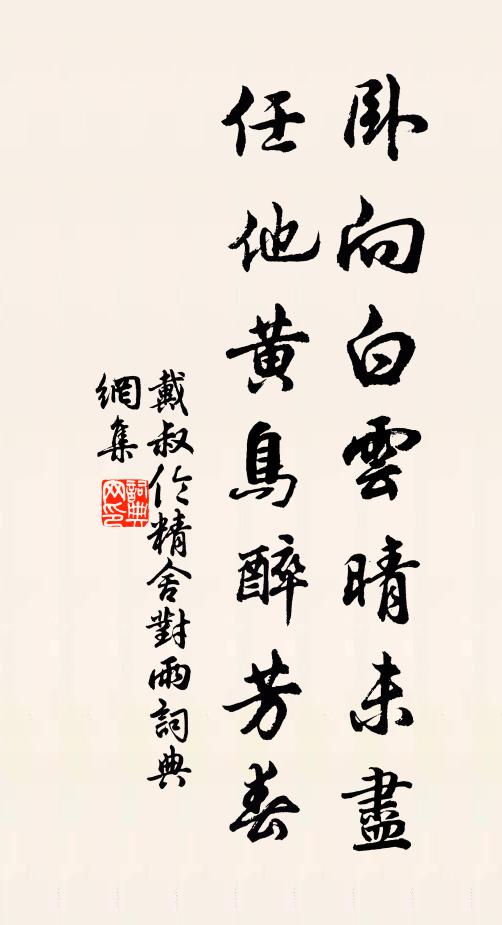 臥向白雲晴未盡
任他黃鳥醉芳春
戴叔伦精舍對雨詞典
網集
詞典
网印